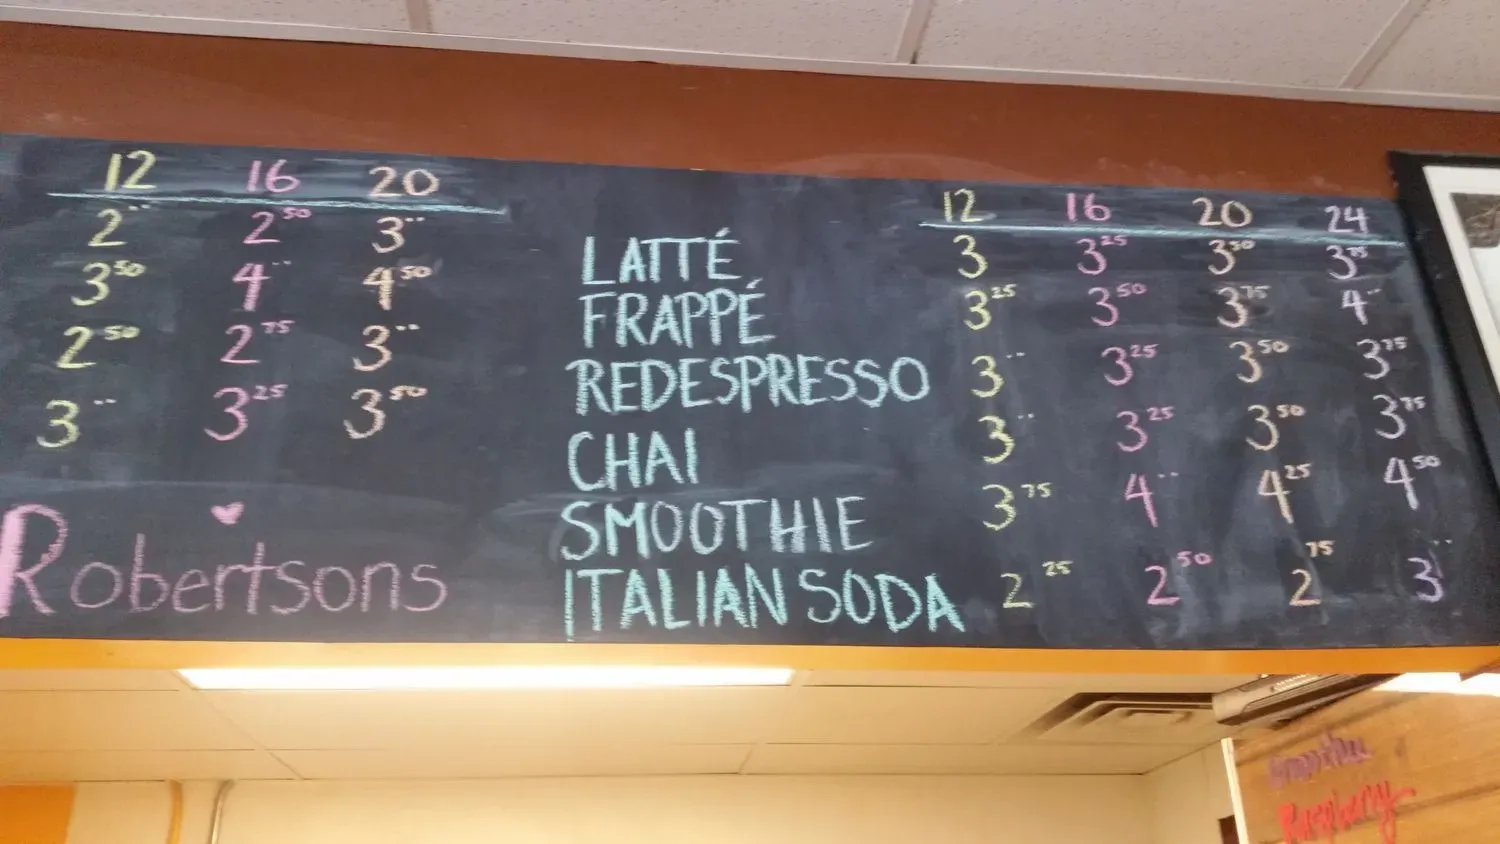 12 16 20
2·· 2⁵⁰ 3··
3⁵⁰ 4·· 4⁵⁰
2⁵⁰ 2⁷⁵ 3··
3·· 3²⁵ 3⁵⁰
Robertsons
12 16 20 24
LATTÉ 3 3²⁵ 3⁵⁰ 3⁷⁵
FRAPPÉ 3²⁵ 3⁵⁰ 3⁷⁵ 4··
REDESPRESSO 3·· 3²⁵ 3⁵⁰ 3⁷⁵
CHAI 3·· 3²⁵ 3⁵⁰ 3⁷⁵
SMOOTHIE 3⁷⁵ 4·· 4²⁵ 4⁵⁰
ITALIAN SODA 2²⁵ 2⁵⁰ 2⁷⁵ 3··
Smoothie
Raspberry